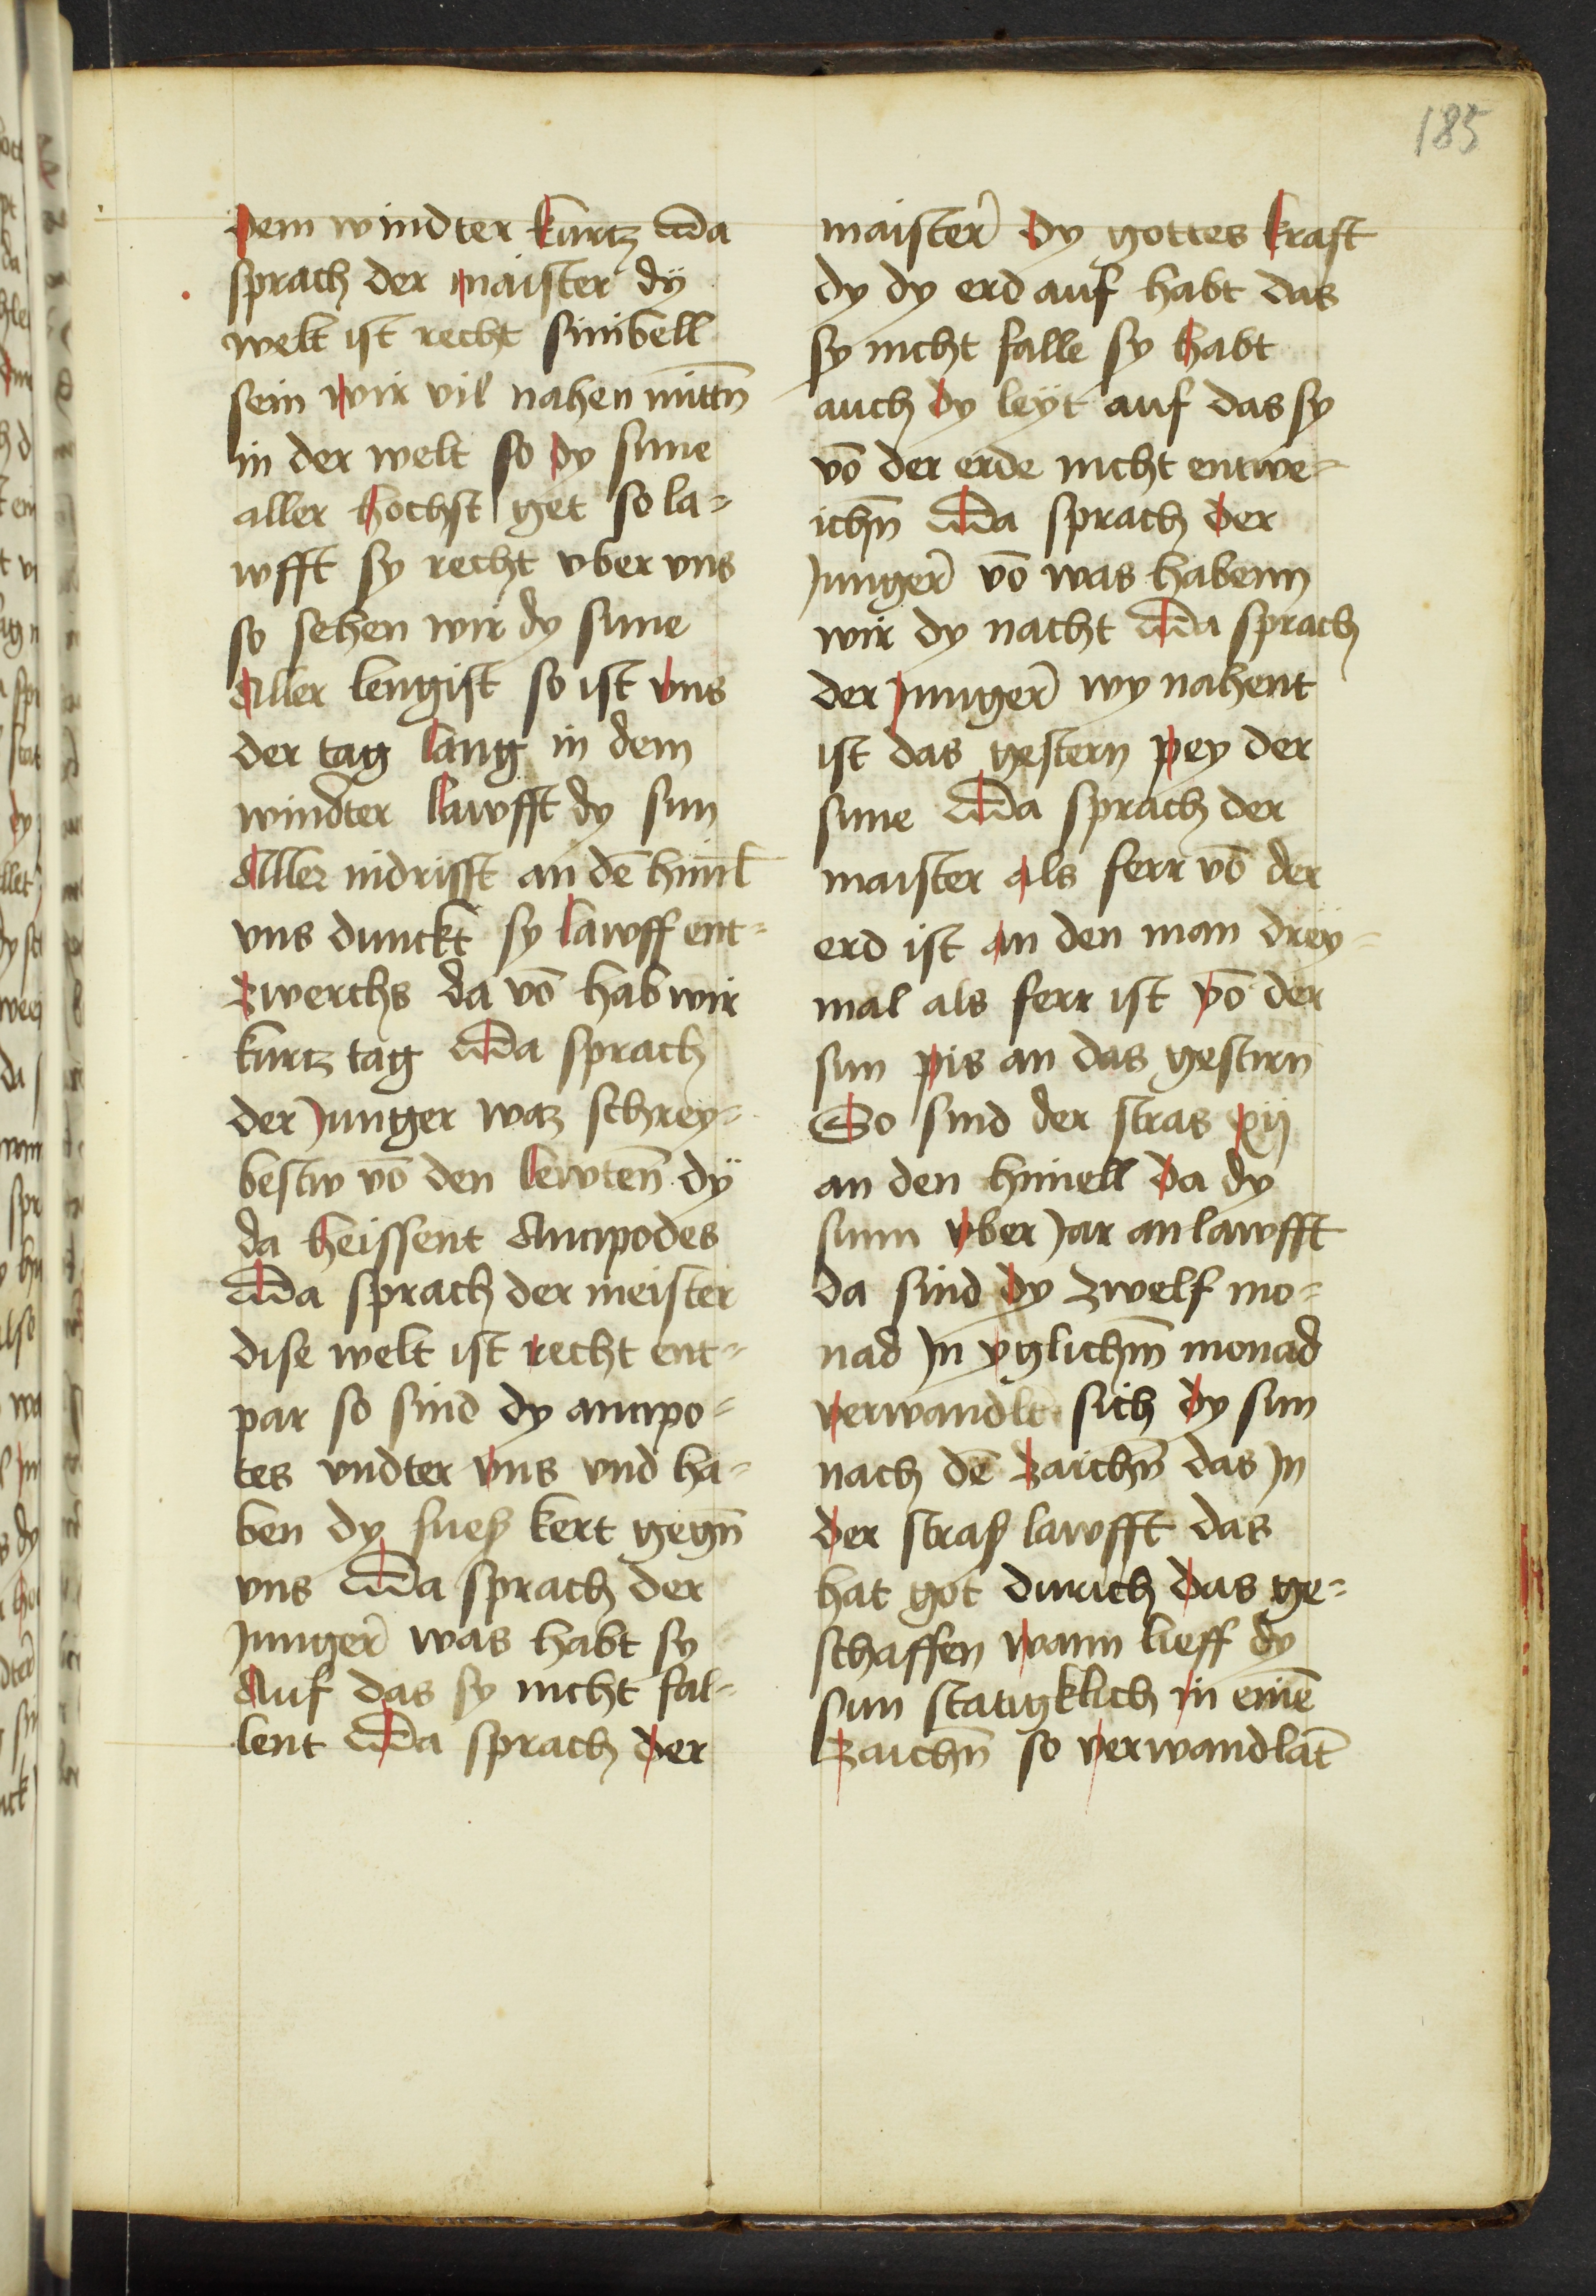 185
dem windter kurtz Da
sprach der maister dÿ
welt ist recht sinibell
sein wir vil nahen mittn̄
in der welt so dy sunne
aller hochst get so la=
wfft sy recht vber vns
so sehen wir dy sunne
Aller lengist so ist vns
der tag lang in dem
windter lawfft dy sun
Aller nidrisst an dē himl̄
vns dunckt sy lawff ent=
zwerchs da vō hab wir
kurtz tag Da sprach
der Junger waz schrey=
bestw vō den lewten̄ dÿ
da heissent Antipodes
Da sprach der meister
dise welt ist recht ent=
par so sind dy antipo=
tes vndter vns vnd ha=
ben dy fuess kert gegn̄
vns Da sprach der
Junger̄ was habt sy
Auf das sy nicht fal=
lent Da sprach der
maister̄ dy gottes kraft
dy dy erd auf habt das
sy nicht falle sy habt
auch dy leÿt auf das sy
vō der erde nicht entwe=
ichn̄ Da sprach der
Junger̄ vō was habenn
wir dy nacht Da sprach
der Junger̄ wy nahent
ist das gestern pey der
sunne Da sprach der
maister als ferr vō der
erd ist an den man drey=
mal als ferr ist vō der
sun pis an das gestirn
So sind der stras xij
an den himell da dy
sunn vber Jar an lawfft
da sind dy zwelf mo=
nad Jn yglichm̄ monad
verwandlt sich dy sun
nach dē zaichn̄ das Jn
der strass lawfft das
hat got durich das ge=
schaffen wann lieff dy
sun statigklich in einē
zaichn̄ so verwandlat̄